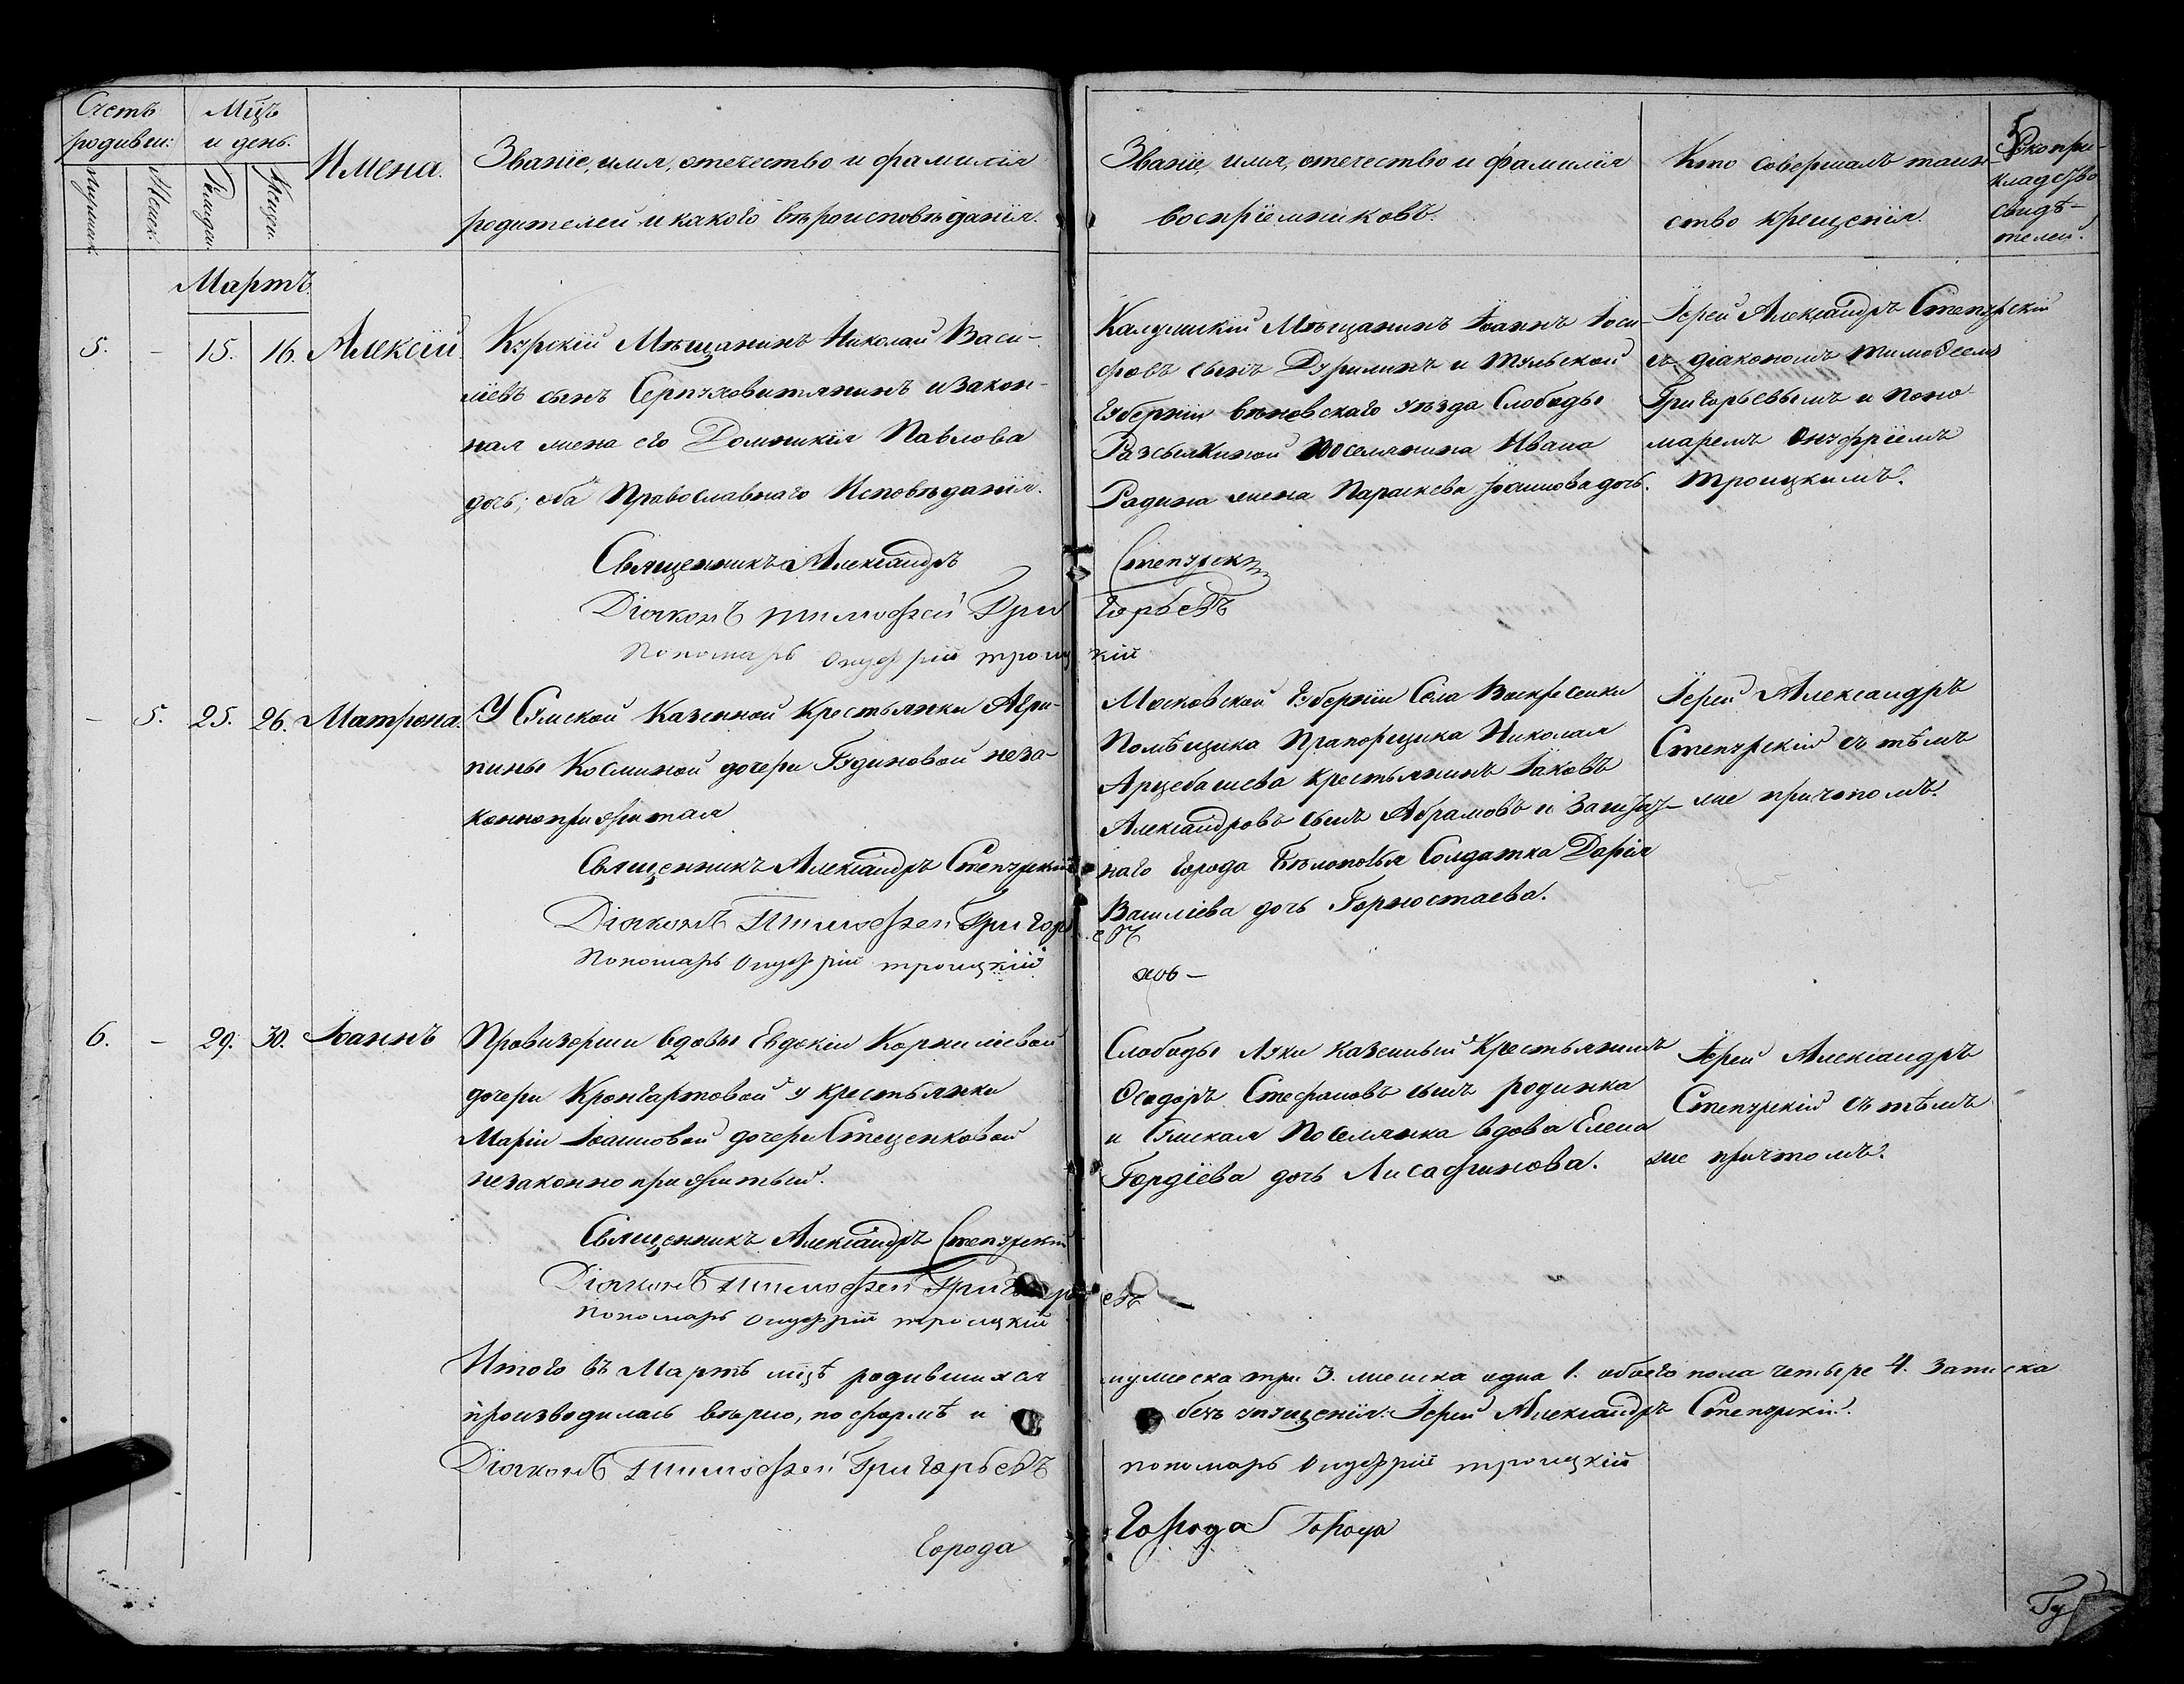 Счетъ
родивш:
Мцъ
и день.
Имена.
Званіе, имя, отечество и фамилія
родителей и какого вѣроисповѣданія.
Званіе, имя, отечество и фамилія
воспріемниковъ.
Кто совершалъ таин-
ство крещенія.
5
Рукопри-
кладство
свидѣ-
телей.
Мужеск.
Женск.
Рожден.
Крещен.
Мартъ.
5. - 15. 16. Алексій.
Курскій Мѣщанинъ Николай Васи-
ліевъ сынъ Серпуховитянинъ и закон-
ная жена его Домникія Павлова
дочь; оба Православнаго Исповѣданія.
Калужскій Мѣщанинъ Іоаннъ Іоси-
фовъ сынъ Дурилинъ и Тульской
губерніи вѣновскаго уѣзда Слободы
поселянина Ивана
Радина жена Параскева Іоаннова дочь.
Іерей Александръ Степурскій
съ діакономъ Тимоѳеемъ
Григорьевымъ и поно-
маремъ Онуфріемъ
Троицкимъ.
Священникъ Александръ Степурск
Діаконъ Тимофей Григорьевъ
Пономарь Онуфрій Троицкій
- 5. 25. 26. Матрона.
У Сумской Казенной Крестьянки Агри-
пины Косминой дочери Будиновой неза-
коннoприжитая
Московской губерніи Села Воскресенки
Помѣщика Прапорщика Николая
Арцебашева Крестьянинъ Іаковъ
Александровъ сынъ Абрамовъ и Заштат-
наго города Бѣлополья Солдатка Дарія
Василіева дочь Горностаева.
Іерей Александръ
Степурскій съ тѣмъ
же причтомъ.
Священникъ Александръ Степурскій
Діаконъ Тимофей Григорьевъ
Пономарь Онуфрій Троицкій
6. - 29. 30. Іоаннъ
Провизорши вдовы Евдокіи Корниліевой
дочери Кронгартовой у крестьянки
Маріи Іоанновой дочери Стеценковой
незаконноприжитый.
Слободы Луки казенный Крестьянинъ
Ѳеодоръ Стефановъ сынъ родинка
и Сумская Поселянка вдова Елена
Гордіева дочь Лисафинова.
Іерей Александръ
Степурскій съ тѣмъ
же причтомъ.
Священникъ Александръ Степурскій
Діаконъ Тимофей Григорьевъ
Пономарь Онуфрій Троицкій
Итого въ Мартѣ мцѣ родившихся мужеска три 3. женска одна 1. обоего пола четыре 4. Записка
производилась вѣрно, по формѣ и безъ упущенія: Іерей Александръ Степурскій.
Діаконъ Тимофей Григорьевъ пономарь Онуфрій Троицкій
Города Города Города